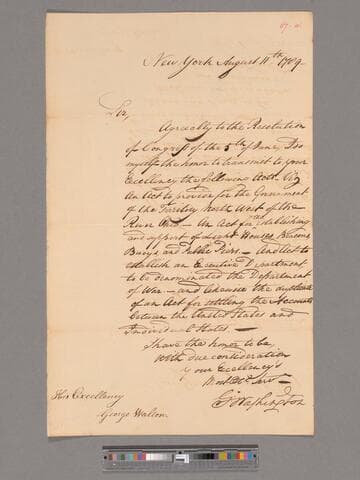 New York August 11th 1789.
Sir,
Agreeably to the Resolution
of Congress of the 5th of June, I do
myself the honor to transmit to your
Excellency the following Acts. Viz
An Act to provide for the Government
of the Territory North West of the
River Ohio — An Act for establishing
and support of Light Houses, Beacons
Buoys and Public Piers — And Act to
establish an Executive Department
to be denominated the Department
of War — and likewise the
of an Act for settling the Accounts
between the United States and
Individual States. —
I have the honor to be
With due consideration
Your Excellency's
Most Obt. Servt —
Go: Washington
His Excellency
George Walton